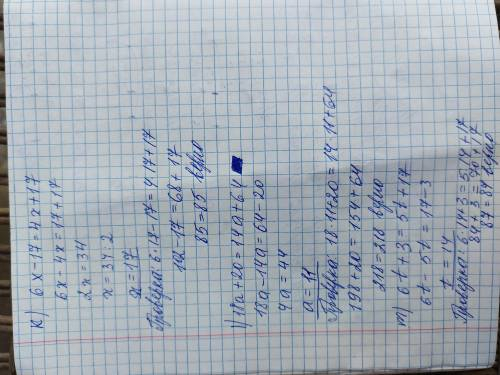 к) 6x-17=4x+17
6x-4x=17+17
2x=34
x=34:2
x=17
Проверка: 6·17-17=4·17+17
102-17=68+17
85=85 верно
л) 18a+20=14a+64
18a-14a=64-20
4a=44
a=11
Проверка: 18·11+20=14·11+64
198+20=154+64
218=218 верно
m) 6t+3=5t+17
6t-5t=17-3
t=14
Проверка: 6·14+3=5·14+17
84+3=70+17
87=87 верно